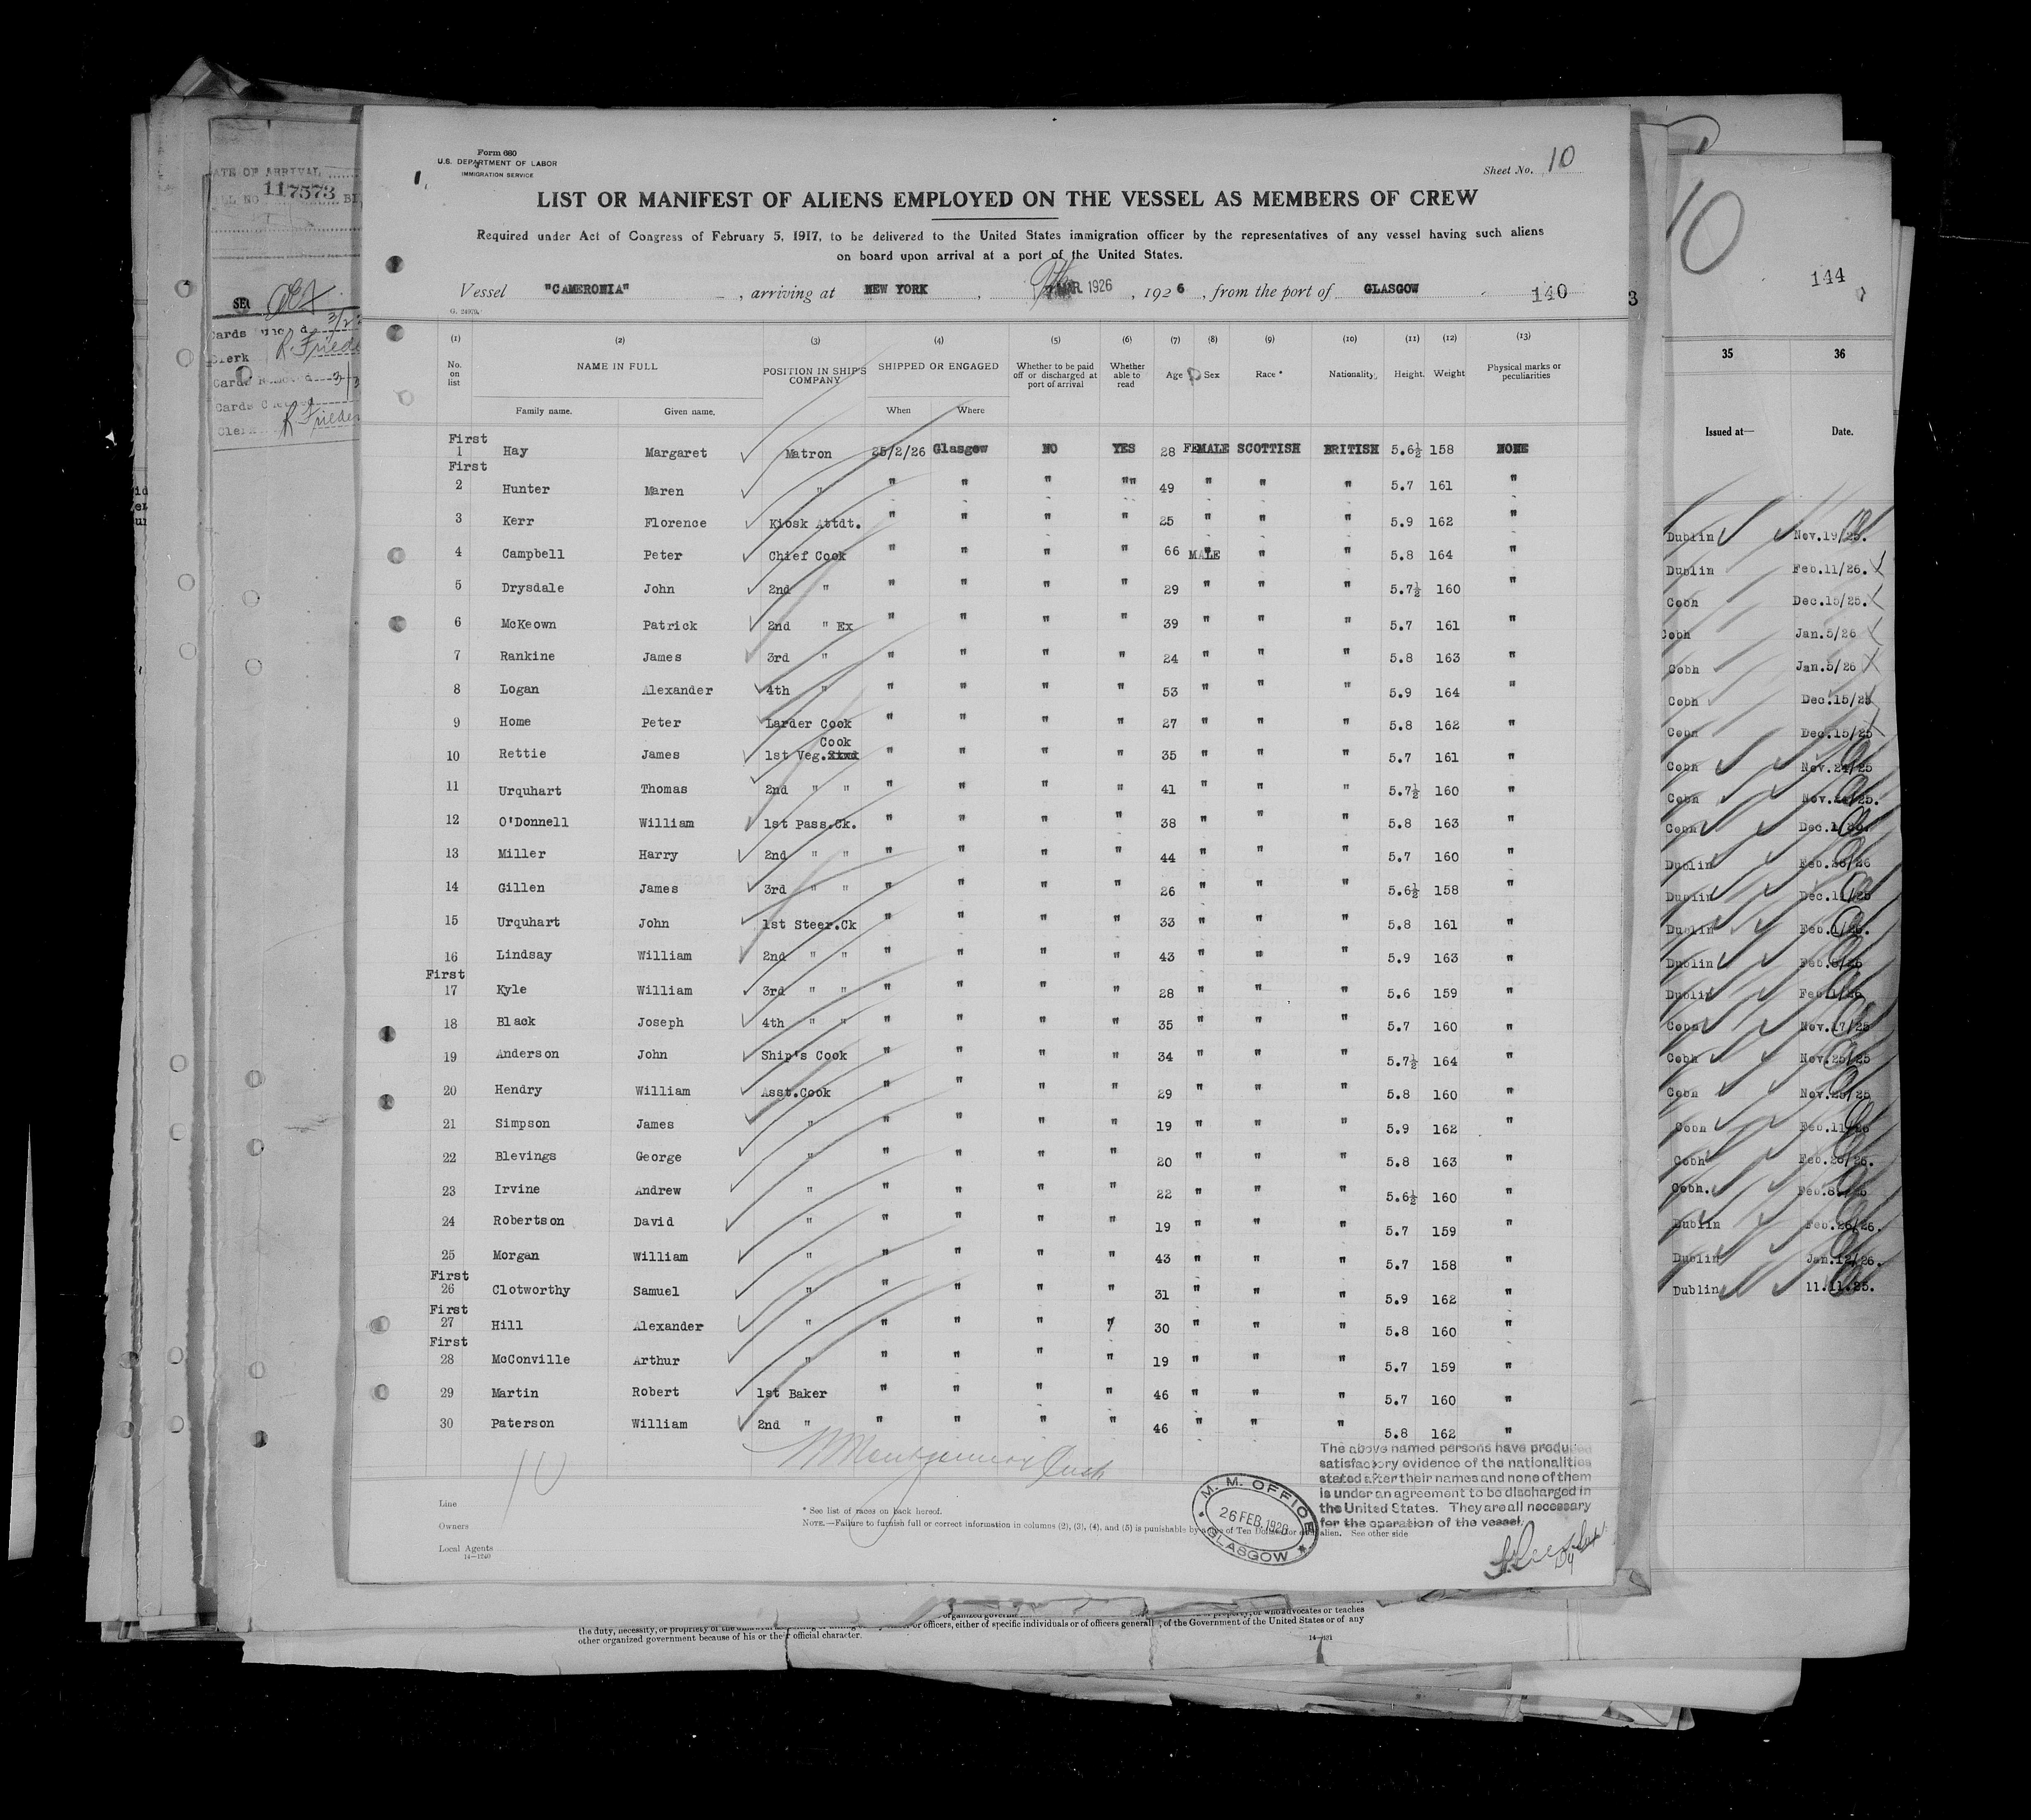 Form 680
U.S. DEPARTMENT OF LABOR
IMMIGRATION SERVICE
Sheet No. 10
LIST OR MANIFEST OF ALIENS EMPLOYED ON THE VESSEL AS MEMBERS OF CREW
Required under Act of Congress of February 5, 1917, to be delivered to the United States immigration officer by the representatives of any vessel having such aliens
on board upon arrival at a port of the United States.
Vessel "CAMERONIA" , arriving at NEW YORK , MAR 1926 , 1926 , from the port of GLASGOW 140
(1) (2) (3) (4) (5) (6) (7) (8) (9) (10) (11) (12) (13)
No. on list NAME IN FULL POSITION IN SHIP'S COMPANY SHIPPED OR ENGAGED Whether to be paid off or discharged at port of arrival Whether able to read Age Sex Race * Nationality. Height. Weight Physical marks or peculiarities
Family name. Given name. When Where
First
1 Hay Margaret Matron 25/2/26 Glasgow NO YES 28 FEMALE SCOTTISH BRITISH 5.6½ 158 NONE
First
2 Hunter Maren " " " " "" 49 " " " 5.7 161 "
3 Kerr Florence Kiosk Attdt. " " " " 25 " " " 5.9 162 "
4 Campbell Peter Chief Cook " " " " 66 MALE " " 5.8 164 "
5 Drysdale John 2nd " " " " " 29 " " " 5.7½ 160 "
6 McKeown Patrick 2nd " Ex " " " " 39 " " " 5.7 161 "
7 Rankine James 3rd " " " " " 24 " " " 5.8 163 "
8 Logan Alexander 4th " " " " " 53 " " " 5.9 164 "
9 Home Peter Larder Cook " " " " 27 " " " 5.8 162 "
Cook
10 Rettie James 1st Veg. " " " " 35 " " " 5.7 161 "
11 Urquhart Thomas 2nd " " " " " " 41 " " " 5.7½ 160 "
12 O'Donnell William 1st Pass.Ck. " " " " 38 " " " 5.8 163 "
13 Miller Harry 2nd " " " " " " 44 " " " 5.7 160 "
14 Gillen James 3rd " " " " " " 26 " " " 5.6½ 158 "
15 Urquhart John 1st Steer.Ck " " " " 33 " " " 5.8 161 "
16 Lindsay William 2nd " " " " " " 43 " " " 5.9 163 "
First
17 Kyle William 3rd " " " " " " 28 " " " 5.6 159 "
18 Black Joseph 4th " " " " " " 35 " " " 5.7 160 "
19 Anderson John Ship's Cook " " " " 34 " " " 5.7½ 164 "
20 Hendry William Asst.Cook " " " " 29 " " " 5.8 160 "
21 Simpson James " " " " " 19 " " " 5.9 162 "
22 Blevings George " " " " " 20 " " " 5.8 163 "
23 Irvine Andrew " " " " " 22 " " " 5.6½ 160 "
24 Robertson David " " " " " 19 " " " 5.7 159 "
25 Morgan William " " " " " 43 " " " 5.7 158 "
First
26 Clotworthy Samuel " " " " " 31 " " " 5.9 162 "
First
27 Hill Alexander " " " " " 30 " " " 5.8 160 "
First
28 McConville Arthur " " " " " 19 " " " 5.7 159 "
29 Martin Robert 1st Baker " " " " 46 " " " 5.7 160 "
30 Paterson William 2nd " " " " " 46 " " " 5.8 162 "
10
The above named persons have produ
satisfactory evidence of the nationalities
stated after their names and none of them
is under an agreement to be discharged in
the United States. They are all necessary
for the operation of the vessel.
M. M. OFFICE
26 FEB. 1926
GLASGOW
Line
Owners
Local Agents
14—1240
* See list of races on back hereof.
NOTE.—Failure to furnish full or correct information in columns (2), (3), (4), and (5) is punishable by a fine of Ten Dollars for each alien. See other side
ATE OF ARRIVAL
117573
Cards
Clerk R. Friede
Clerk R Frieden
10
144
3
35 36
Issued at— Date.
Dublin Nov.19/25.
Dublin Feb.11/26.
Cobh Dec.15/25.
Cobh Jan.5/26
Cobh Jan.5/26
Cobh Dec.15/25
Cobh Dec.15/25
Cobh Nov.24/25
Cobh Nov. /25.
Cobh Dec.1/
Dublin Feb. /26
Dublin Dec.11/25
Dublin Feb.1/26.
Dublin Feb.8/26
Dublin Feb.1/26
Cobh Nov.17/25
Cobh Nov.25/25
Cobh Nov.25/25
Cobh Feb.11/26
Cobh Feb.26/26.
Cobh. Feb.8/26
Dublin Feb.26/26.
Dublin Jan.12/26.
Dublin 11.11.25.
the duty, necessity, or propriety of the or officers, either of specific individuals or of officers generally, of the Government of the United States or of any
other organized government because of his or their official character.